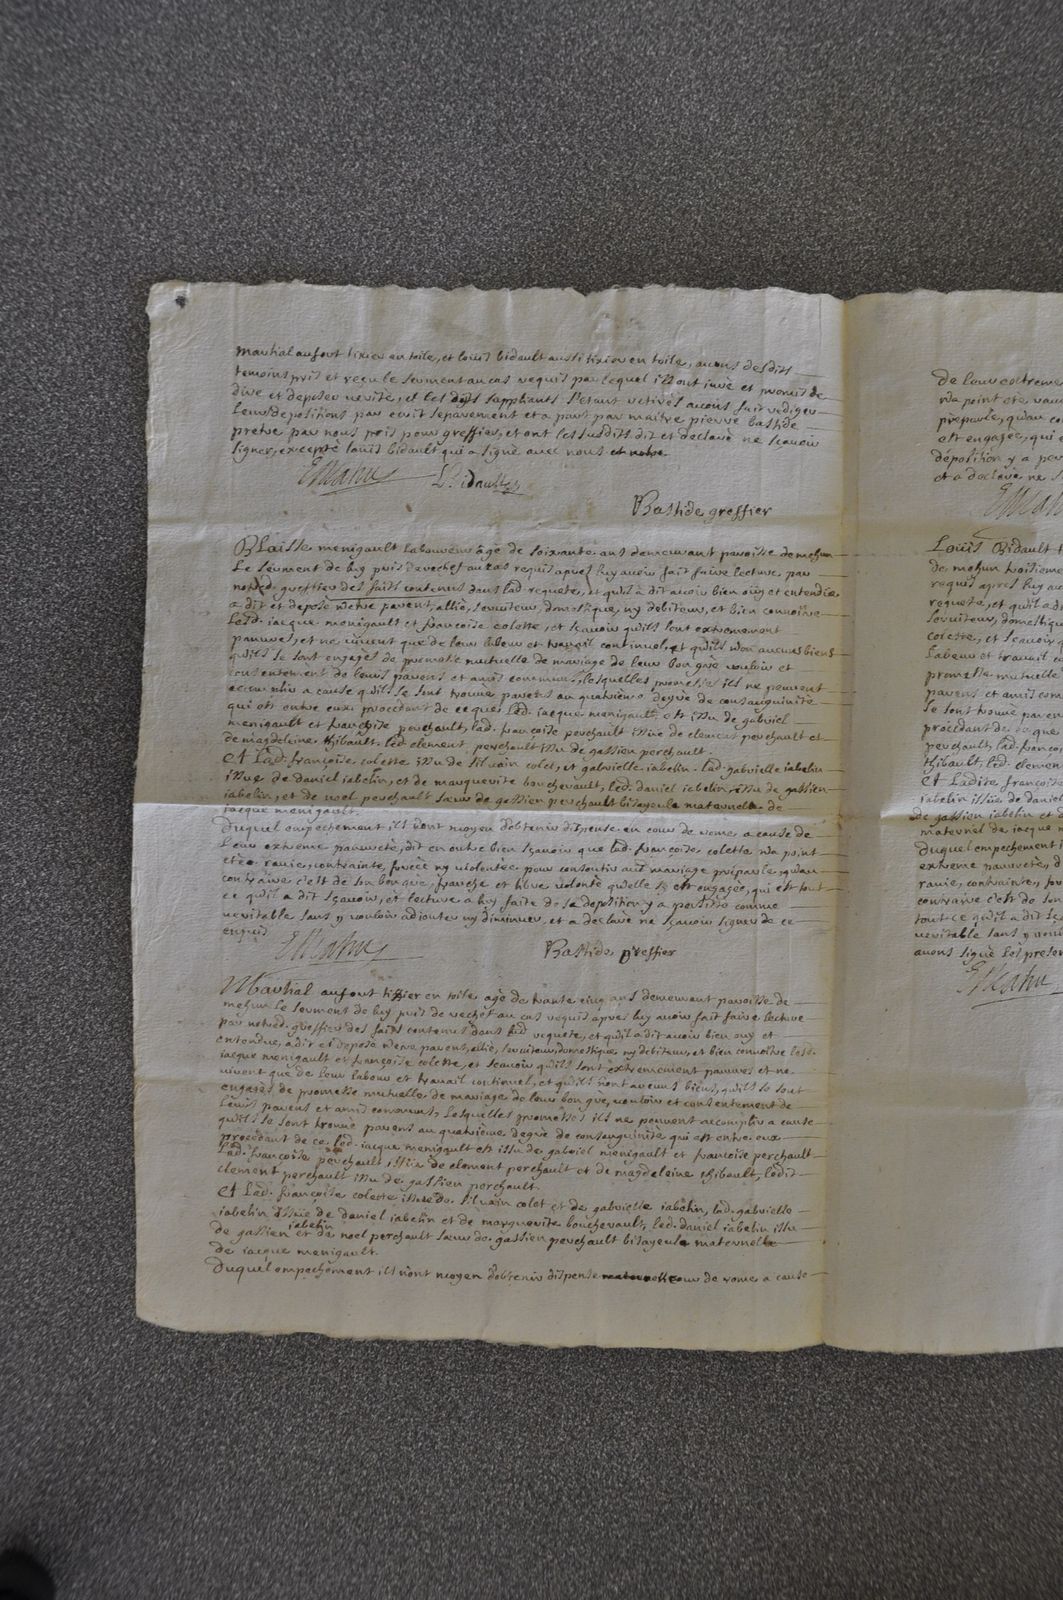 martial aufort tixier en toile, et louis bidault aussi tixier en toile, avons desdits
temoins pris et reçu le serment au cas requis par lequel ils ont juré et promis de
dire et deposer verité, et les dits suppliants s'etant retirés avons fait rediger
leurs depositions par ecrit séparément et a part par maître pierre bastide
pretre par nous pris pour greffier, et ont les susdits dit et declaré ne sçavoir
signer, excepté louis bidault qui a signé avec nous et notre
L. bidault
Bastide greffier
Blaisse menigault laboureur âgé de soixante ans demeurant paroisse de mehun
le serment de luy pris derechef au cas requis apres luy avoir fait faire lecture par
notred. greffier des faits contenus dans lad. requete, et qu'il a dit avoir bien oüy et entendüe
a dit et deposé n'etre parent, allié, serviteur, domestique, ny debiteur, et bien connoître
lesd. jacque menigault et françoise colette, et sçavoir qu'ils sont extremement
pauvres, et ne vivent que de leur labeur et travail continuel, et qu'ils n'on aucuns biens
qu'ils se sont engagés de promesse mutuelle de mariage de leur bon gré vouloir et
consentement de leurs parens et amis communs, lesquelles promesses ils ne peuvent
accomplir a cause qu'ils se sont trouvé parens au quatrième degré de consanguinité
qui est entre eux procedant de ce que led. jacque menigault est issu de gabriel
menigault et françoise perchault, lad. françoise perchault issue de clement perchault et
de magdeleine thibault, led. clement perchault issu de gassien perchault.
Et lad. françoise colette issue de silvain colet, et gabrielle iabelin lad. gabrielle iabelin
issue de daniel iabelin, et de marguerite boucherault, led. daniel iabelin issu de gassien
iabelin, et de noel perchault sœur de gassien perchault bisayeule maternelle de
jacque menigault.
Duquel empechement ils n'ont moyen d'obtenir dispense en cour de rome a cause de
leur extreme pauvreté, dit en outre bien sçavoir que lad. françoise colette n'a point
eté ravie, contrainte, forcée ny violentée pour consentir aud. mariage préparlé, qu'au
contraire c'est de son bon gré, franche et libre volonté qu'elle s'est engagée, qui est tout
ce qu'il a dit sçavoir, et lecture a luy faite de sa deposition y a persisté comme
veritable sans y vouloir adjouter ny diminuer, et a declaré ne sçavoir signer de ce
enquis
Bastide greffier
Martial aufout tissier en toile agé de trante cinq ans demeurant paroisse de
mehun le serment de luy pris de rechef au cas requis apres luy avoir fait faire lecture
par notred. greffier des faits contenus dans lad requete, et qu'il a dit avoir bien ouy et
entendüe, a dit et deposé n'etre parent, allié, serviteur, domestique, ny debiteur, et bien connoître lesd.
jacque menigault et françoise colette, et sçavoir qu'ils sont extremement pauvres et ne
vivent que de leur labeur et travail continuel, et qu'ils n'ont aucuns biens, qu'ils se sont
engagés de promesse mutuelle de mariage de leur bon gré, vouloir et consentement de
leurs parens et amis communs, lesquelles promesses ils ne peuvent accomplir a cause
qu'ils se sont trouvé parens au quatrième degré de consanguinité qui est entre eux
procedant de ce led. jacque menigault est issu de gabriel menigault et françoise perchault
lad. françoise perchault issue de clement perchault et de magdeleine thibault, ledit
clement perchault issu de gassien perchault.
Et lad. françoise colette issue de silvain colet et de gabrielle iabelin, lad. gabrielle
iabelin issüe de daniel iabelin et de marguerite boucherault, led. daniel iabelin issu
de gassien iabelin et de noel perchault sœur de gassien perchault bisayeule maternelle
de jacque menigault.
Duquel empechement ils n'ont moyen d'obtenir dispense en cour de rome a cause
de leur extreme
n'a point eté
préparlé, qu'au
est engagée, qui
déposition y a
et a declaré ne
Louis Bidault
de mehun
requis apres luy
requete, et qu'il a
serviteur, domestique
colette, et sçavoir
labeur et travail
promesse mutuelle
parens et amis
se sont trouvé
procedant de ce que
perchault, lad. françoise
thibault, led. clement
Et Ladite françoise
iabelin issüe de daniel
de gassien iabelin et
maternel de jacque
Duquel empechement
extreme pauvreté, d
ravie, contrainte, for
contraire c'est de son
tout ce qu'il a dit
veritable sans y
avons signé les